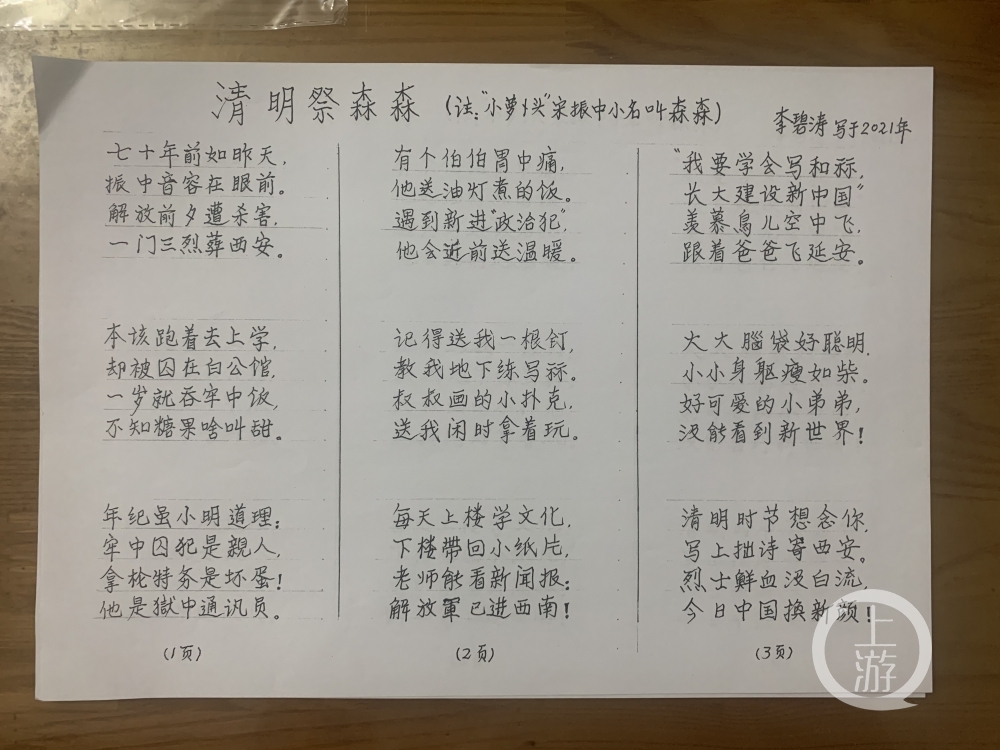 清明祭森森(注:“小萝卜头”宋振中小名叫森森)
李碧涛 写于2021年
七十年前如昨天,
振中音容在眼前。
解放前夕遭杀害,
一门三烈葬西安。
本该跑着去上学,
却被囚在白公馆,
一岁就吞牢中饭,
不知糖果啥叫甜。
年纪虽小明道理:
牢中囚犯是親人,
拿枪特务是坏蛋!
他是獄中通讯员。
(1页)
有个伯伯胃中痛,
他送油灯煮的饭。
遇到新进“政治犯”
他会近前送温暖。
记得送我一根钉,
教我地下练写标。
叔叔画的小扑克,
送我闲时拿着玩。
每天上楼学文化,
下楼帶回小纸片,
老师能看新闻报:
解放軍已进西南!
(2页)
“我要学会写和标,
长大建设新中国”
羡慕鸟儿空中飞,
跟着爸爸飞延安。
大大腦袋好聪明,
小小身躯瘦如柴。
好可爱的小弟弟,
没能看到新世界!
清明时节想念你,
写上拙诗寄西安。
烈士鲜血没白流,
今日中国换新颜!
(3页)
上游